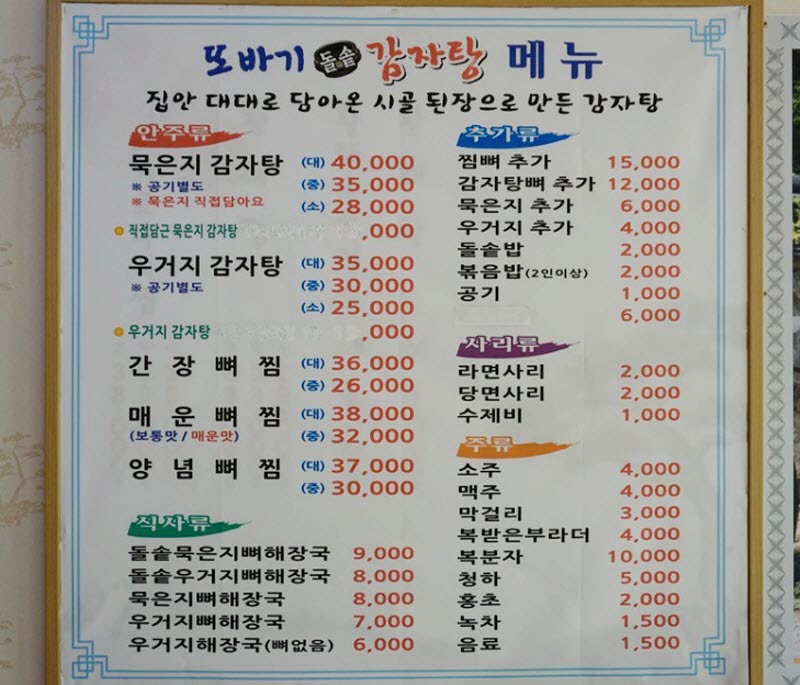 또바기 돌솥 감자탕 메뉴
집안 대대로 담아온 시골 된장으로 만든 감자탕
안주류
묵은지 감자탕 (대) 40,000
※ 공기별도 (중) 35,000
※ 묵은지 직접담아요 (소) 28,000
직접담근 묵은지 감자탕 ,000
우거지 감자탕 (대) 35,000
※ 공기별도 (중) 30,000
(소) 25,000
우거지 감자탕 ,000
간장뼈찜 (대) 36,000
(중) 26,000
매운뼈찜 (대) 38,000
(보통맛 / 매운맛) (중) 32,000
양념뼈찜 (대) 37,000
(중) 30,000
식사류
돌솥묵은지뼈해장국 9,000
돌솥우거지뼈해장국 8,000
묵은지뼈해장국 8,000
우거지뼈해장국 7,000
우거지해장국(뼈없음) 6,000
추가류
찜뼈 추가 15,000
감자탕뼈 추가 12,000
묵은지 추가 6,000
우거지 추가 4,000
돌솥밥 2,000
볶음밥(2인이상) 2,000
공기 1,000
6,000
사리류
라면사리 2,000
당면사리 2,000
수제비 1,000
주류
소주 4,000
맥주 4,000
막걸리 3,000
복받은부라더 4,000
복분자 10,000
청하 5,000
홍초 2,000
녹차 1,500
음료 1,500